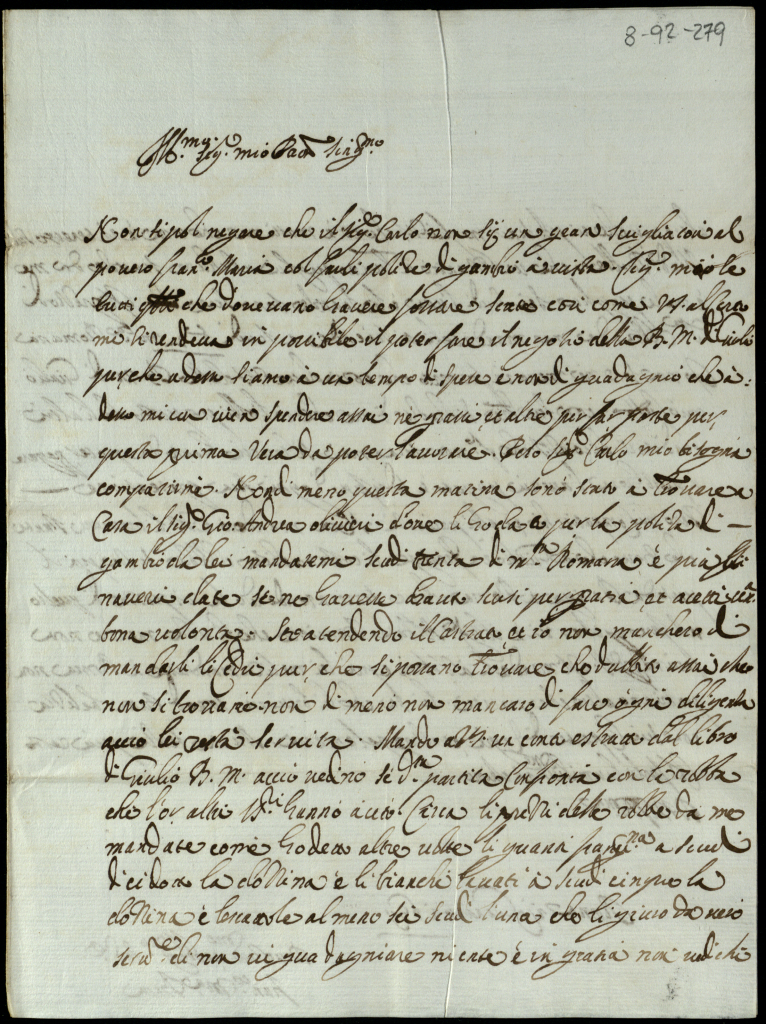 8-92-279
Ill.mo sig.r mio Pad.n sing.mo
Non si pol negare che il sig.r Carlo non sij un gran sviglia con al
povero Fran.co Maria col farli polide di gambio à vista. Sig.r mio le
tutti che doverano havere fortuna state cosi come V.S. all
mi si rendeva in possibile il poter fare il negotio della B. M. di Giulio
per che adesso siamo à un tempo di spese e non di guadagnio che à-
desso mi con vien spendere assai ne grassi et altre per far per
questa prima Vera da poter lavorare. Pero sig.r Carlo mio bisogna
compatirmi. Nondi meno questa matina sono stato à Trovare a
Casa il sig.r Gio: Andrea olivieri dove li ho dato per la polida di —
gambio da lei mandatemi scudi trenta di m.ta Romana è più
naverei date se ne havesse havute scusi per gratia et acetti
bona volonta. Sto atendendo il Castrato et io non manchero di
mandarli li Cedri pur che si possano Trovare, che dubbito assai che
non si trovano non di meno non mancaro di fare ogni diligenta
acciò lei resta servita. Mando à V.S. un conto estratto dal libro
di Giulio B. M. acciò vedino se d.ta partita Confronta con le robba
che lor altri SS.ri hanno àuto. Circa li prezzi delle robbe da me
mandate come ho detto altre volte li guanti à scudi
dicidotto la dozzina è li bianchi lavati à scudi cinque la
dozzina è le scatole almeno sei scudi l'una che li giuro da vero
serv.re di non vi guadagniare niente è in gratia non vedi chi